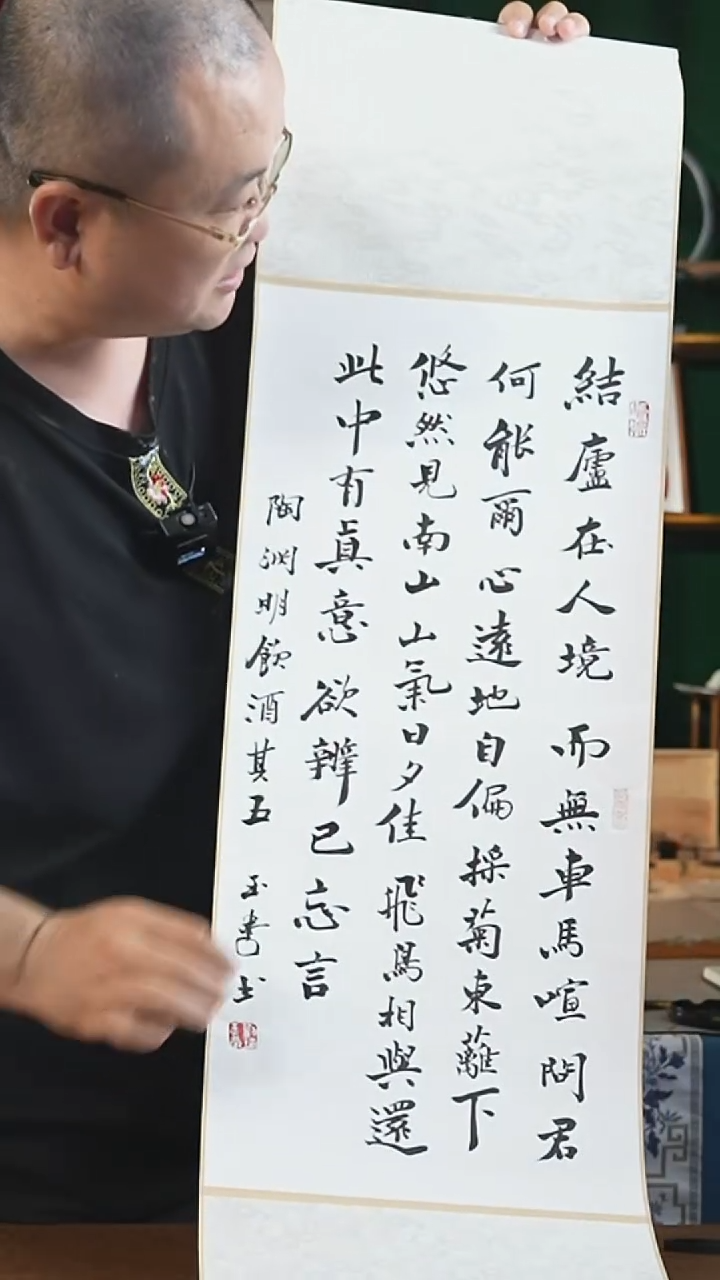 結廬在人境而無車馬喧問君
何能爾心遠地自偏採菊東蘺下
悠然見南山山氣日夕佳飛鳥相與還
此中有眞意欲辨已忘言
陶渊明飲酒其五 玉书